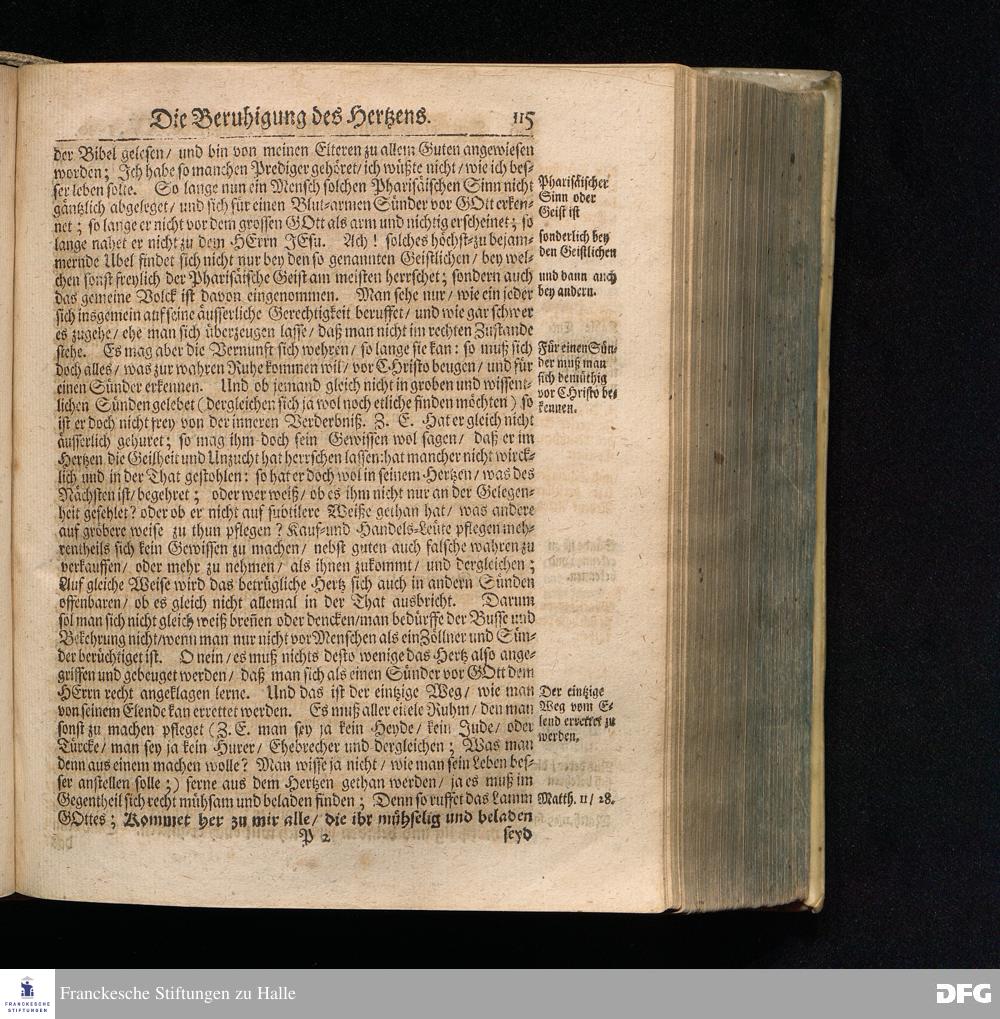 Die Beruhigung des Hertzens. 115
der Bibel gelesen/ und bin von meinen Elteren zu allem Guten angewiesen
worden; Ich habe so manchen Prediger gehöret/ ich wüßte nicht/ wie ich bes-
ser leben solte. So lange nun ein Mensch solchen Pharisäischen Sinn nicht
gäntzlich abgeleget/ und sich für einen Blut-armen Sünder vor GOtt erken-
net; so lange er nicht vor dem grossen GOtt als arm und nichtig erscheinet; so
lange nahet er nicht zu dem HErrn JEsu. Ach! solches höchst-zu bejam-
mernde Übel findet sich nicht nur bey den so genannten Geistlichen/ bey wel-
chen sonst freylich der Pharisäische Geist am meisten herrschet; sondern auch
das gemeine Volck ist davon eingenommen. Man sehe nur/ wie ein jeder
sich insgemein auf seine äusserliche Gerechtigkeit beruffet/ und wie gar schwer
es zugehe/ ehe man sich überzeugen lasse/ daß man nicht im rechten Zustande
stehe. Es mag aber die Vernunft sich wehren/ so lange sie kan: so muß sich
doch alles/ was zur wahren Ruhe kommen wil/ vor CHristo beugen/ und für
einen Sünder erkennen. Und ob jemand gleich nicht in groben und wissent-
lichen Sünden gelebet (dergleichen sich ja wol noch etliche finden möchten) so
ist er doch nicht frey von der inneren Verderbniß. Z. E. Hat er gleich nicht
äusserlich gehuret; so mag ihm doch sein Gewissen wol sagen/ daß er im
Hertzen die Geilheit und Unzucht hat herrschen lassen: hat mancher nicht wirck-
lich und in der That gestohlen: so hat er doch wol in seinem Hertzen/ was des
Nächsten ist/ begehret; oder wer weiß/ ob es ihm nicht nur an der Gelegen-
heit gefehlet? oder ob er nicht auf subtilere Weiße gethan hat/ was andere
auf gröbere weise zu thun pflegen? Kauf-und Handels-Leüte pflegen meh-
rentheils sich kein Gewissen zu machen/ nebst guten auch falsche wahren zu
verkauffen/ oder mehr zu nehmen/ als ihnen zukommt/ und dergleichen;
Auf gleiche Weise wird das betrügliche Hertz sich auch in andern Sünden
offenbaren/ ob es gleich nicht allemal in der That ausbricht. Darum
sol man sich nicht gleich weiß breñen oder dencken/ man bedürffe der Busse und
Bekehrung nicht/ wenn man nur nicht vor Menschen als ein Zöllner und Sün-
der berüchtiget ist. O nein/ es muß nichts desto wenige das Hertz also ange-
griffen und gebeuget werden/ daß man sich als einen Sünder vor GOtt dem
HErrn recht angeklagen lerne. Und das ist der eintzige Weg/ wie man
von seinem Elende kan errettet werden. Es muß aller eitele Ruhm/ den man
sonst zu machen pfleget (Z. E. man sey ja kein Heyde/ kein Jude/ oder
Türcke/ man sey ja kein Hurer/ Ehebrecher und dergleichen; Was man
denn aus einem machen wolle? Man wisse ja nicht/ wie man sein Leben bes-
ser anstellen solle;) ferne aus dem Hertzen gethan werden/ ja es muß im
Gegentheil sich recht mühsam und beladen finden; Denn so ruffet das Lamm
GOttes; Kommet her zu mir alle/ die ihr mühselig und beladen
P 2 seyd
Pharisäischer
Sinn oder
Geist ist
sonderlich bey
den Geistlichen
und dann auch
bey andern.
Für einen Sün-
der muß man
sich demüthig
vor CHristo be-
kennen.
Der eintzige
Weg vom E-
lend errettet zu
werden.
Matth. 11/ 28.
FRANCKESCHE
STIFTUNGEN
Franckesche Stiftungen zu Halle
DFG